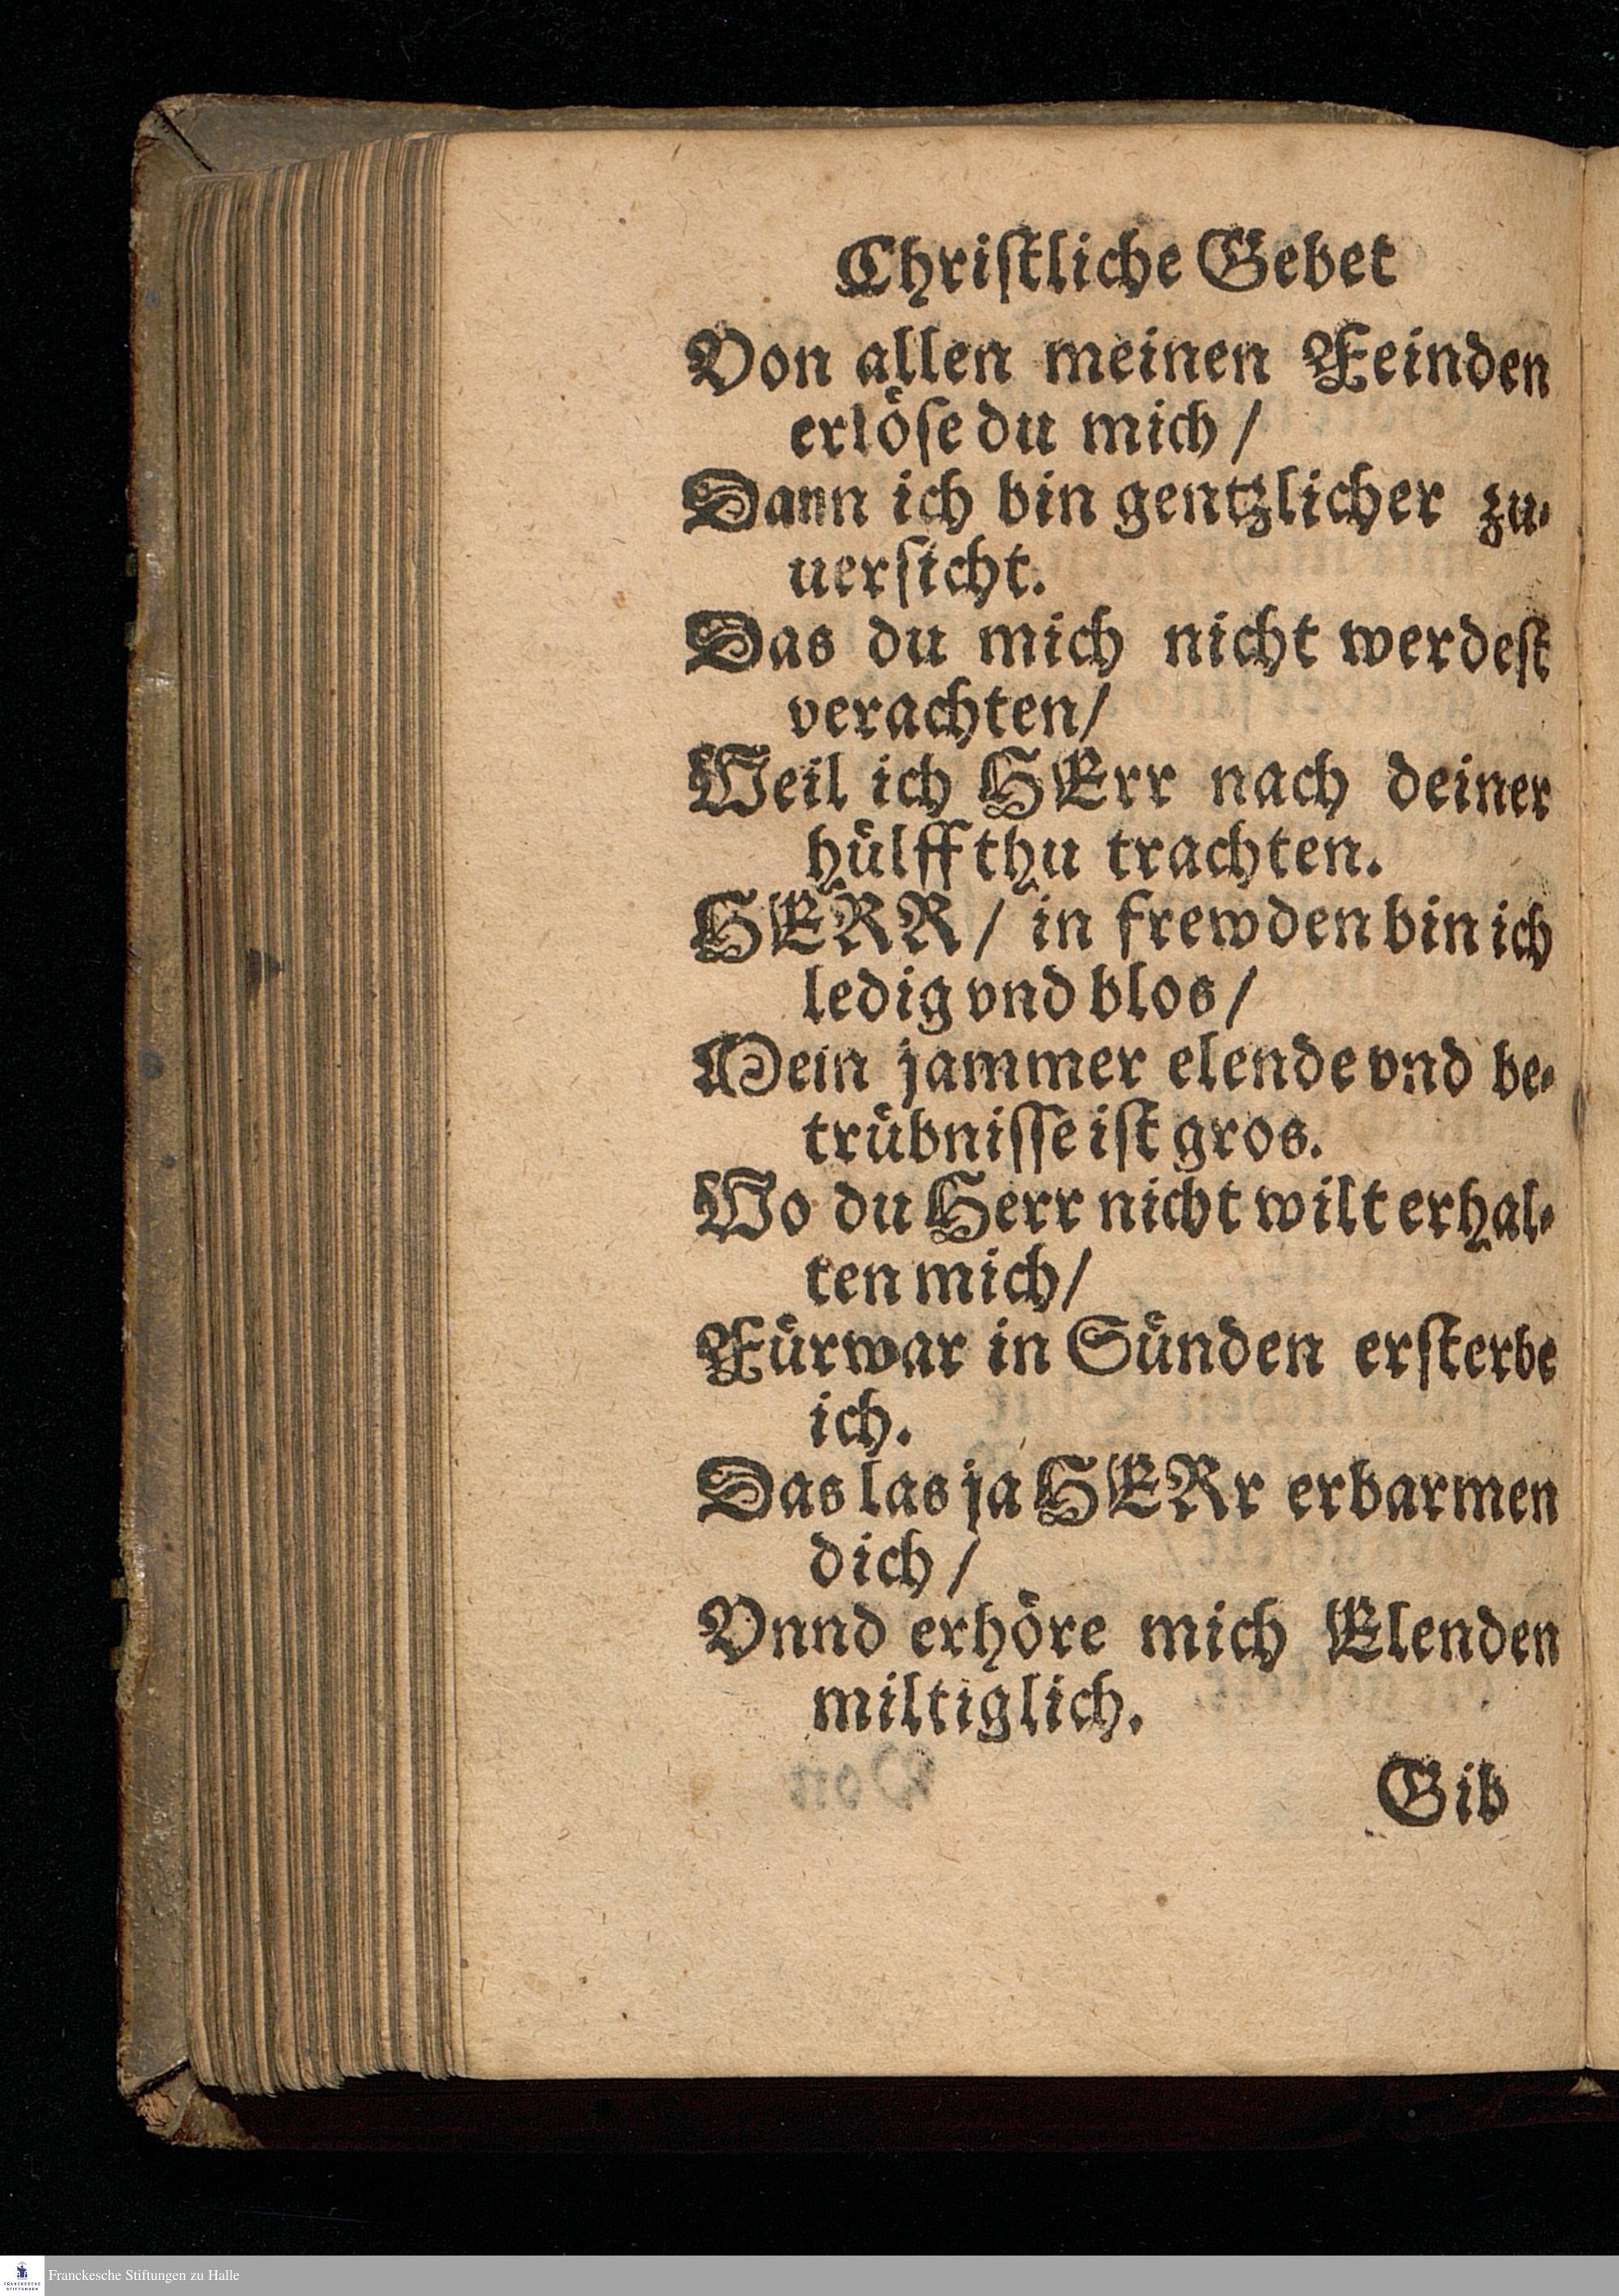 Chriſtliche Gebet
Von allen meinen Feinden
erloͤſe du mich /
Dann ich bin gentzlicher zu-
uerſicht.
Das du mich nicht werdeſt
verachten /
Weil ich HErr nach deiner
huͤlff thu trachten.
HERR / in frewden bin ich
ledig vnd blos /
Mein jammer elende vnd be-
truͤbniſſe iſt gros.
Wo du Herr nicht wilt erhal-
ten mich /
Fuͤrwar in Suͤnden erſterbe
ich.
Das las ja HERr erbarmen
dich /
Vnnd erhoͤre mich Elenden
miltiglich.
Gib
Franckesche Stiftungen zu Halle
FRANCKESCHE
STIFTUNGEN